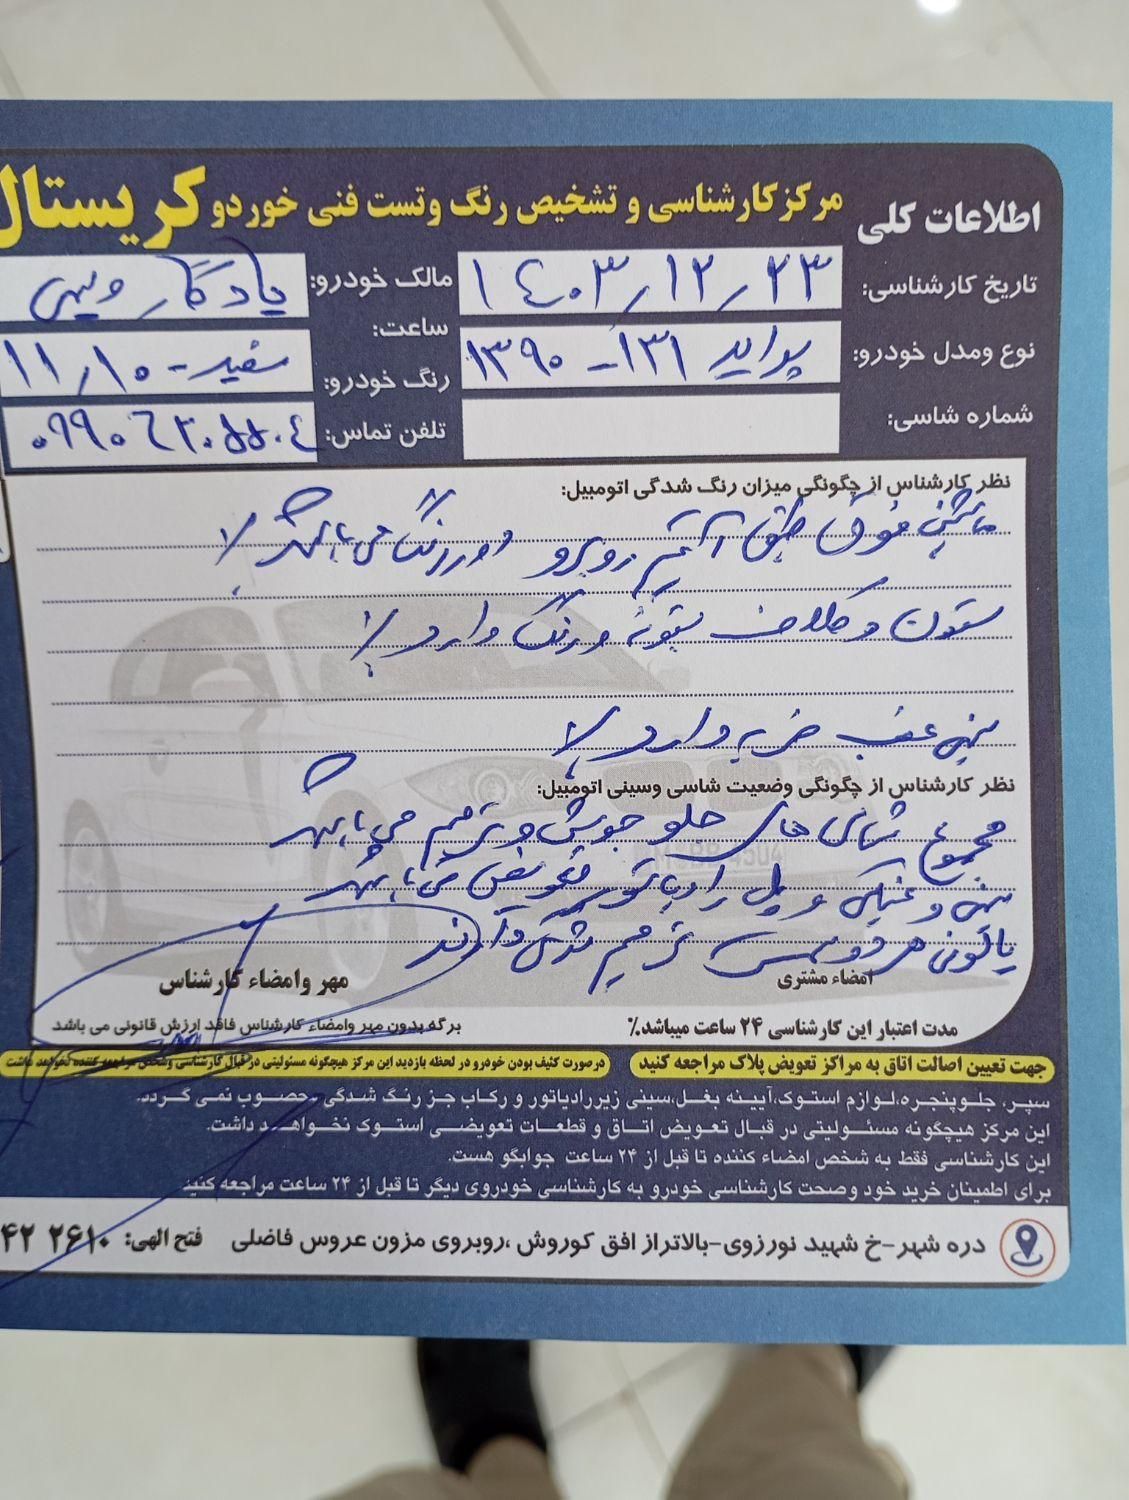 اطلاعات کلی
مرکز کارشناسی و تشخیص رنگ وتست فنی خوردو کریستال
تاریخ کارشناسی: ۱۴۰۳/۱۲/۲۳
مالک خودرو: یادگار ویسی
نوع ومدل خودرو: پراید ۱۳۱-۱۳۹۰
ساعت:
رنگ خودرو: سفید - ۱۱/۱۰
شماره شاسی:
تلفن تماس:
نظر کارشناس از چگونگی میزان رنگ شدگی اتومبیل:
ماشین فوق طبق آیتم روبرو دور رنگ می باشد
ستون و کلاف بتونه و رنگ دارد
سینی عقب ضربه دارد
نظر کارشناس از چگونگی وضعیت شاسی وسینی اتومبیل:
مجموع شاسی های جلو جوش و ترمیم می باشد
سینی و عینکی و پل رادیاتور تعویض می باشد
پالونی هر دو سمت ترمیم شدگی دارند
امضاء مشتری
مهر وامضاء کارشناس
مدت اعتبار این کارشناسی ۲۴ ساعت میباشد٪
برگه بدون مهر وامضاء کارشناس فاقد ارزش قانونی می باشد
جهت تعیین اصالت اتاق به مراکز تعویض پلاک مراجعه کنید
درصورت کثیف بودن خودرو در لحظه بازدید این مرکز هیچگونه مسئولیتی در قبال کارشناسی وشخص مراجعه کننده نخواهد داشت
سپر، جلوپنجره،لوازم استوک،آیینه بغل،سینی زیررادیاتور و رکاب جز رنگ شدگی محصوب نمی گردد.
این مرکز هیچگونه مسئولیتی در قبال تعویض اتاق و قطعات تعویضی استوک نخواهد داشت.
این کارشناسی فقط به شخص امضاء کننده تا قبل از ۲۴ ساعت جوابگو هست.
برای اطمینان خرید خود وصحت کارشناسی خودرو به کارشناسی خودروی دیگر تا قبل از ۲۴ ساعت مراجعه کنید
دره شهر-خ شهید نورزوی-بالاتراز افق کوروش ،روبروی مزون عروس فاضلی
فتح الهی: ۲۶۱۰ ۴۲